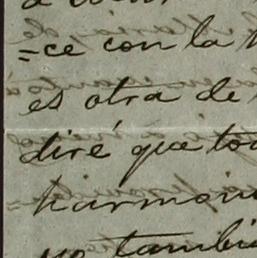 =ce con la
es otra de
diré que to
harmoni
yo tambi